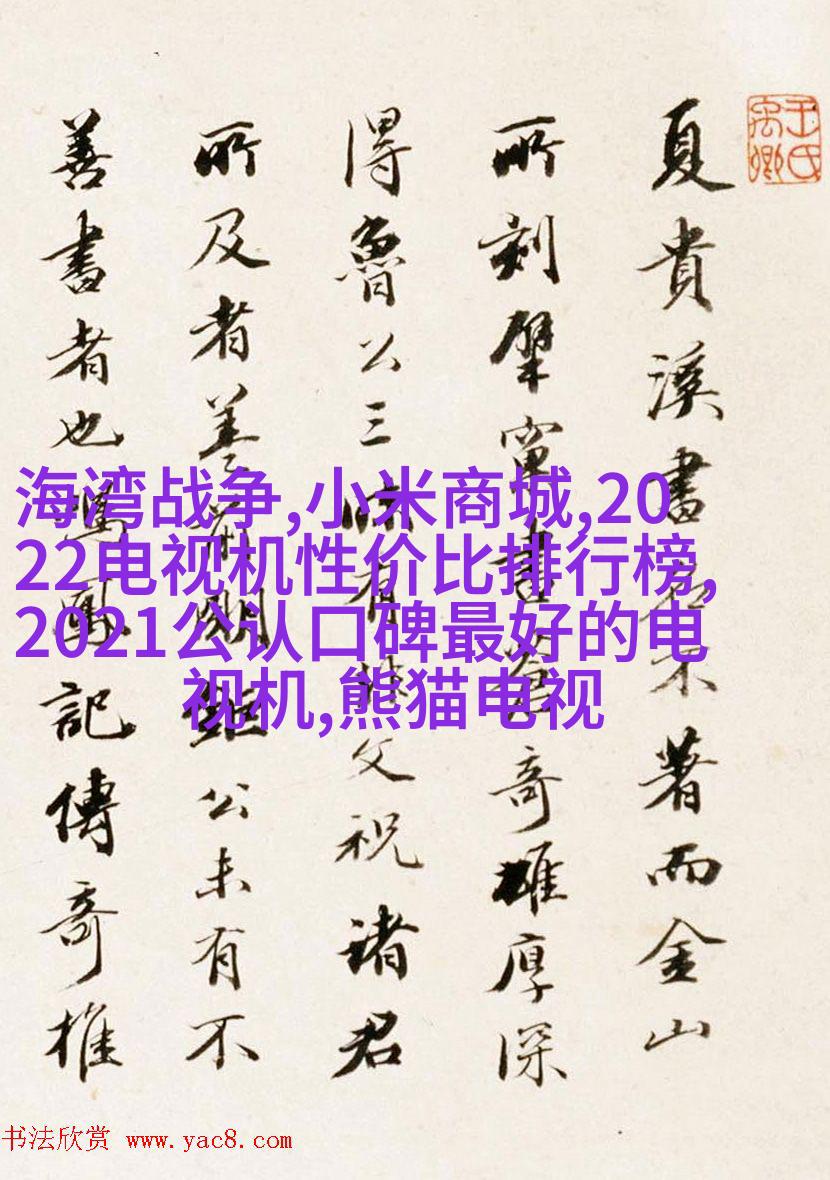 王氏禹卿
夏貴溪書名不著而金山
所刻擘窠書奇雄厚深
得魯公三昧有父祝諸君
所及者善鉅公未有不
善書者也鳴鳳記傳奇推
海湾战争,小米商城,20
22电视机性价比排行榜,
2021公认口碑最好的电
视机,熊猫电视
书法欣赏 www.yac8.com